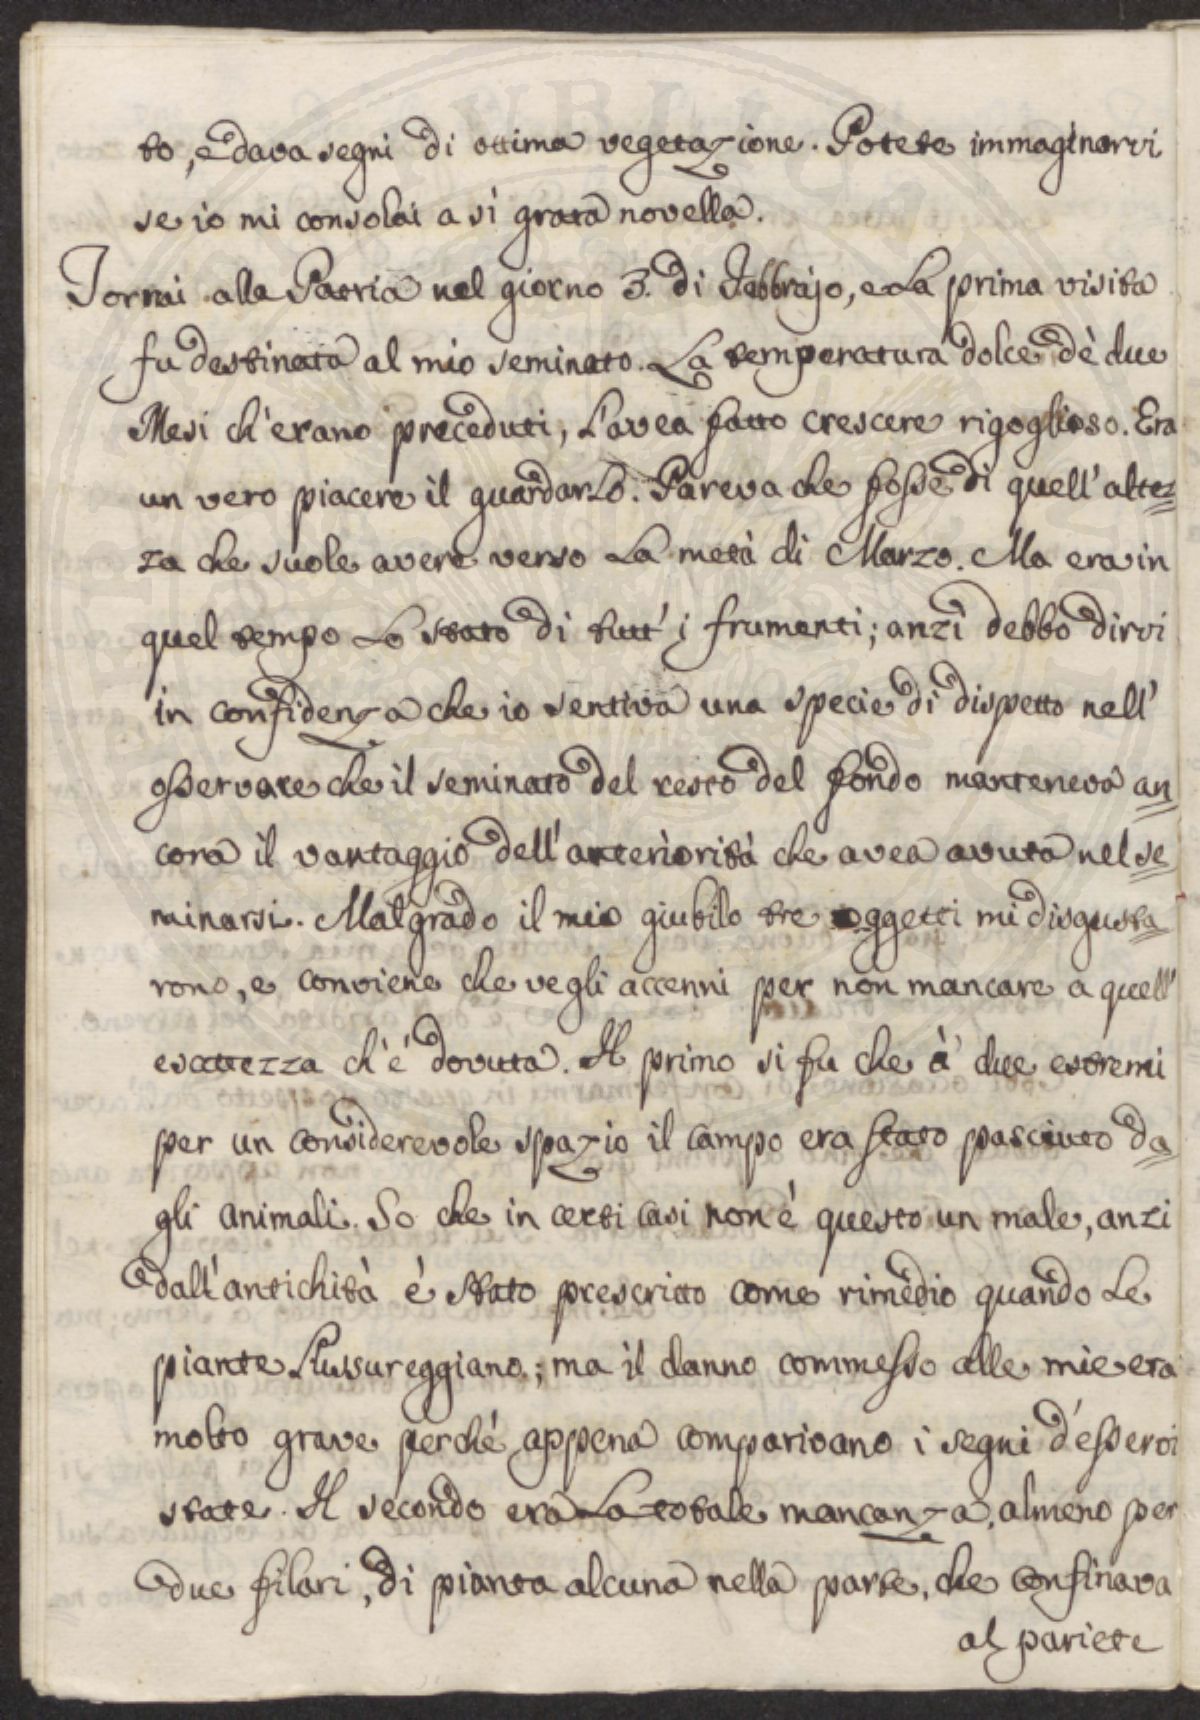 to, e dava segni di ottima vegetazione. Potete immaginarvi
se io mi consolai a sì grata novella.
Tornai alla Patria nel giorno 3. di Febbrajo, e la prima visita
fu destinata al mio seminato. La temperatura dolce dè due
Mesi ch'erano preceduti, l'avea fatto crescere rigoglioso. Era
un vero piacere il guardarlo. Pareva che fosse di quell'altez=
za che suole avere verso la metà di Marzo. Ma era in
quel tempo lo stato di tutt'i frumenti; anzi debbo dirvi
in confidenza che io sentiva una specie di dispetto nell'
osservare che il seminato del resto del fondo manteneva an=
cora il vantaggio dell'anteriorità che avea avuta nel se=
minarsi. Malgrado il mio giubilo tre oggetti mi disgusta=
rono, e conviene che vegli accenni per non mancare a quell'
esattezza ch'è dovuta. Il primo si fu che à due estremi
per un considerevole spazio il campo era stato pasciuto da=
gli animali. So che in certi casi non è questo un male, anzi
dall'antichità è stato prescritto come rimedio quando le
piante lussureggiano; ma il danno commesso alle mie era
molto grave perchè appena comparivano i segni d'esservi
state. Il secondo era la totale mancanza, almeno per
due filari, di pianta alcuna nella parte, che confinava
al pariete